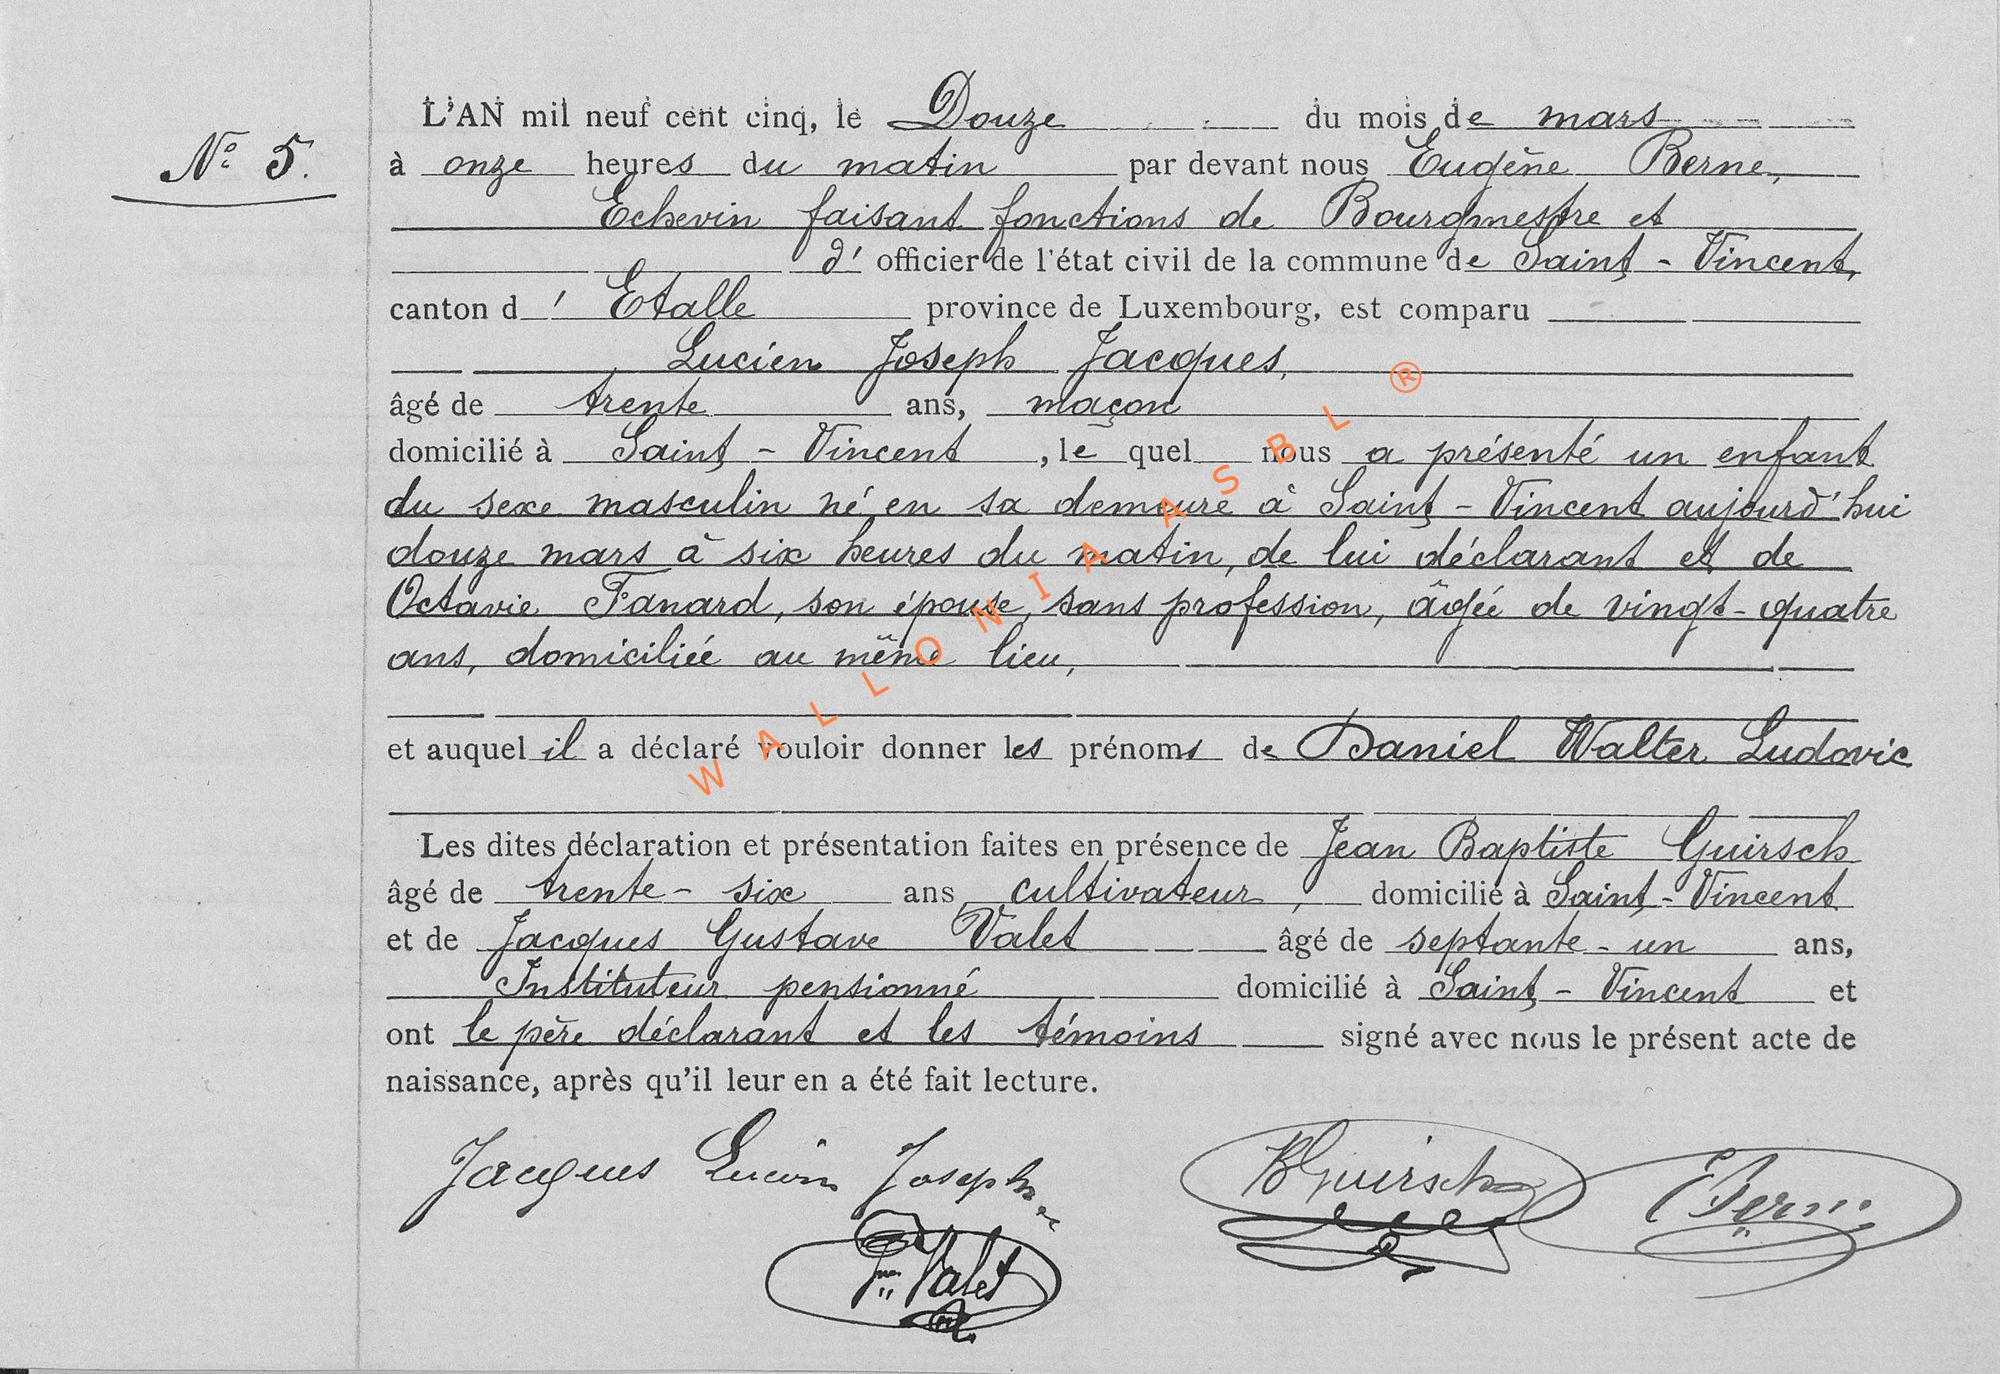 L'AN mil neuf cent cinq, le Douze du mois de mars
N° 5. à onze heures du matin par devant nous Eugène Berne,
Echevin faisant fonctions de Bourgmestre et
d' officier de l'état civil de la commune de Saint-Vincent,
canton d' Etalle province de Luxembourg, est comparu
Lucien Joseph Jacques,
âgé de trente ans, maçon
domicilié à Saint-Vincent, le quel nous a présenté un enfant
du sexe masculin né en sa demeure à Saint-Vincent aujourd'hui
douze mars à six heures du matin, de lui déclarant et de
Octavie Fanard, son épouse, sans profession, âgée de vingt-quatre
ans, domiciliée au même lieu,
et auquel il a déclaré vouloir donner les prénoms de Daniel Walter Ludovic
Les dites déclaration et présentation faites en présence de Jean Baptiste Guirsch
âgé de trente-six ans, cultivateur, domicilié à Saint-Vincent
et de Jacques Gustave Valet âgé de septante-un ans,
Instituteur pensionné domicilié à Saint-Vincent et
ont le père déclarant et les témoins signé avec nous le présent acte de
naissance, après qu'il leur en a été fait lecture.
Jacques Lucien Joseph JBGuirsch E Berne
Valet
WALLONIA ASBL ®